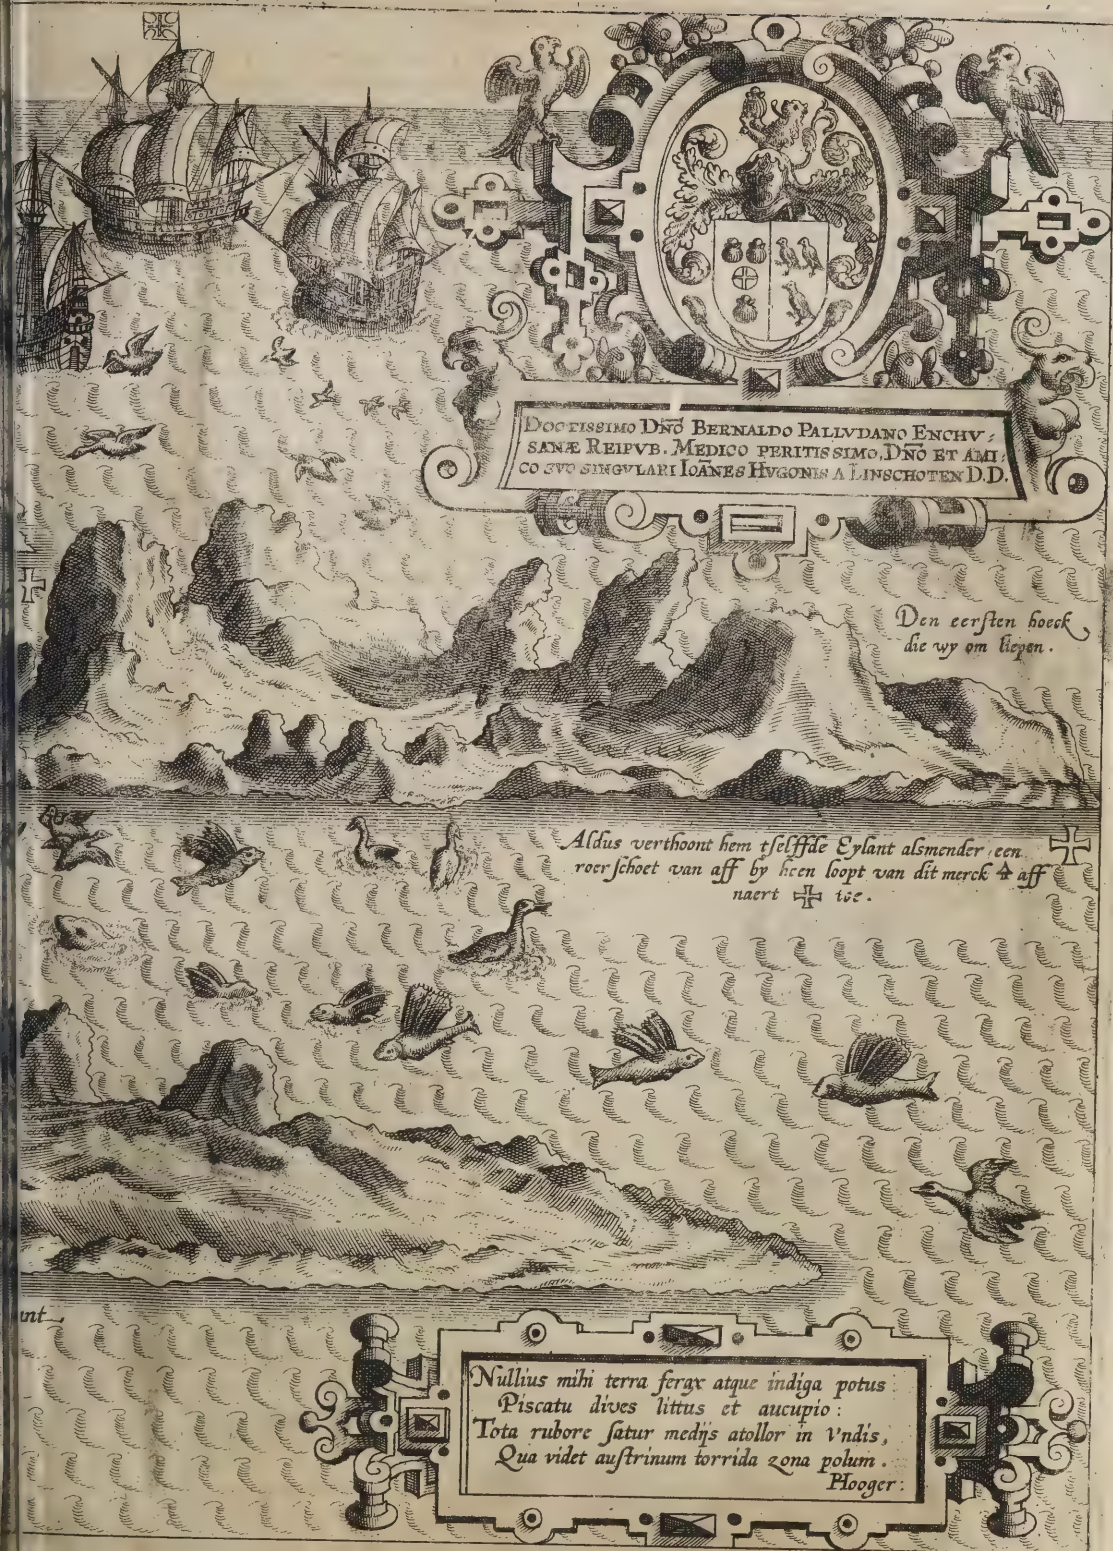 DOCTISSIMO DÑO BERNALDO PALLVDANO ENCHV-
SANÆ REIPVB. MEDICO PERITISSIMO, DÑO ET AMI:
CO SVO SINGVLARI IOÃNES HVGONIS A LINSCHOTEN D.D.
Den eersten hoeck
die wy om liepen.
Aldus verthoont hem tselffde Eylant alsmender een
roer schoet van aff by heen loopt van dit merck aff
naert toe.
ant
Nullius mihi terra ferax atque indiga potus:
Piscatu dives littus et aucupio:
Tota rubore satur medijs atollor in Vndis,
Qua videt austrinum torrida zona polum.
Hooger: